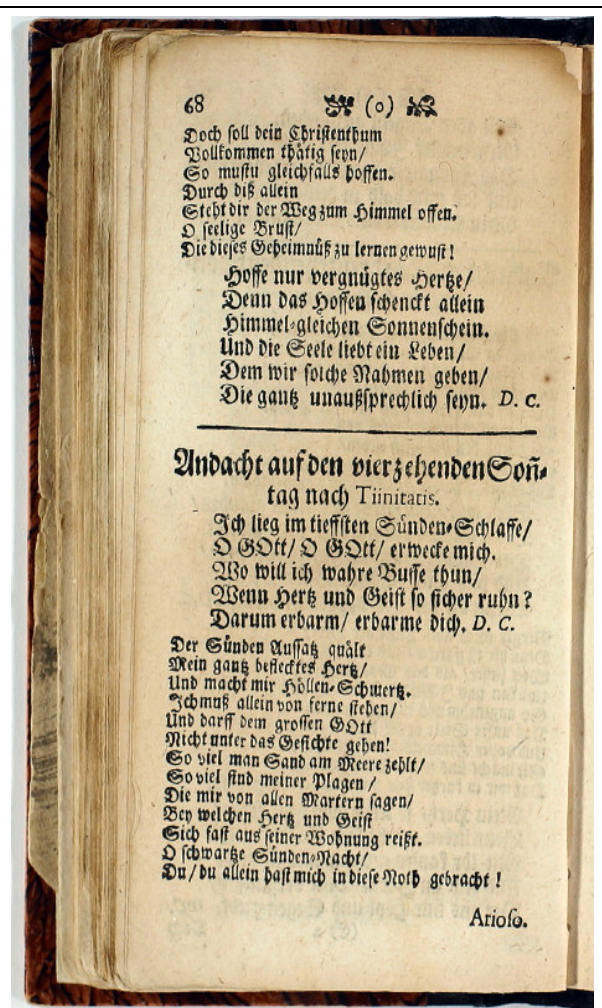 68 (0)
Doch soll dein Christenthum
Vollkommen thätig seyn/
So mustu gleichfalls hoffen.
Durch diß allein
Steht dir der Weg zum Himmel offen.
O seelige Brust/
Die dieses Geheimnüß zu lernen gewust!
Hoffe nur vergnügtes Hertze/
Denn das Hoffen schenckt allein
Himmel-gleichen Sonnenschein.
Und die Seele liebt ein Leben/
Dem wir solche Nahmen geben/
Die gantz unaußsprechlich seyn. D. C.
Andacht auf den vierzehenden Soñ-
tag nach Tiinitatis.
Ich lieg im tieffsten Sünden-Schlaffe/
O GOtt/ O GOtt/ erwecke mich.
Wo will ich wahre Busse thun/
Wenn Hertz und Geist so sicher ruhn?
Darum erbarm/ erbarme dich. D. C.
Der Sünden Aussatz quält
Mein gantz beflecktes Hertz/
Und macht mir Höllen-Schmertz.
Ich muß allein von ferne stehen/
Und darff dem grossen GOtt
Nicht unter das Gesichte gehen!
So viel man Sand am Meere zehlt/
So viel sind meiner Plagen /
Die mir von allen Martern sagen/
Bey welchen Hertz und Geist
Sich fast aus seiner Wohnung reißt.
O schwartze Sünden-Nacht/
Du/ du allein hast mich in diese Noth gebracht !
Arioso.